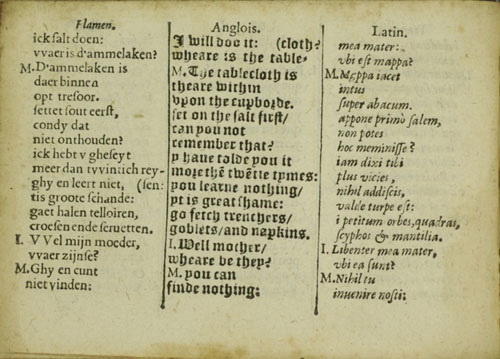 Flamen.
ick salt doen:
vvaer is d'ammelaken?
M. D'ammelaken is
daer binnen
opt tresoor.
settet sout eerst,
condy dat
niet onthouden?
ick hebt v gheseyt
meer dan tvvintich rey-
ghy en leert niet, (sen:
tis groote schande:
gaet halen telloiren,
croesen ende seruetten.
I. VVel mijn moeder,
vvaer zijnse?
M. Ghy en cunt
niet vinden:
Anglois.
I will doo it: (cloth?
wheare is the table-
M. The tablecloth is
theare within
vpon the cupborde.
set on the salt first/
can you not
remember that?
y haue tolde you it
more thē twētie tymes:
you learne nothing/
yt is great shame:
go fetch trenchers/
goblets/ and napkins.
I. Well mother/
wheare be they?
M. you can
finde nothing:
Latin.
mea mater:
vbi est mappa?
M. Mappa iacet
intus
super abacum.
appone primò salem,
non potes
hoc meminisse?
iam dixi tibi
plus vicies,
nihil addiscis,
valde turpe est:
i petitum orbes, quadras,
scyphos & mantilia.
I. Libenter mea mater,
vbi ea sunt?
M. Nihil tu
inuenire nosti: